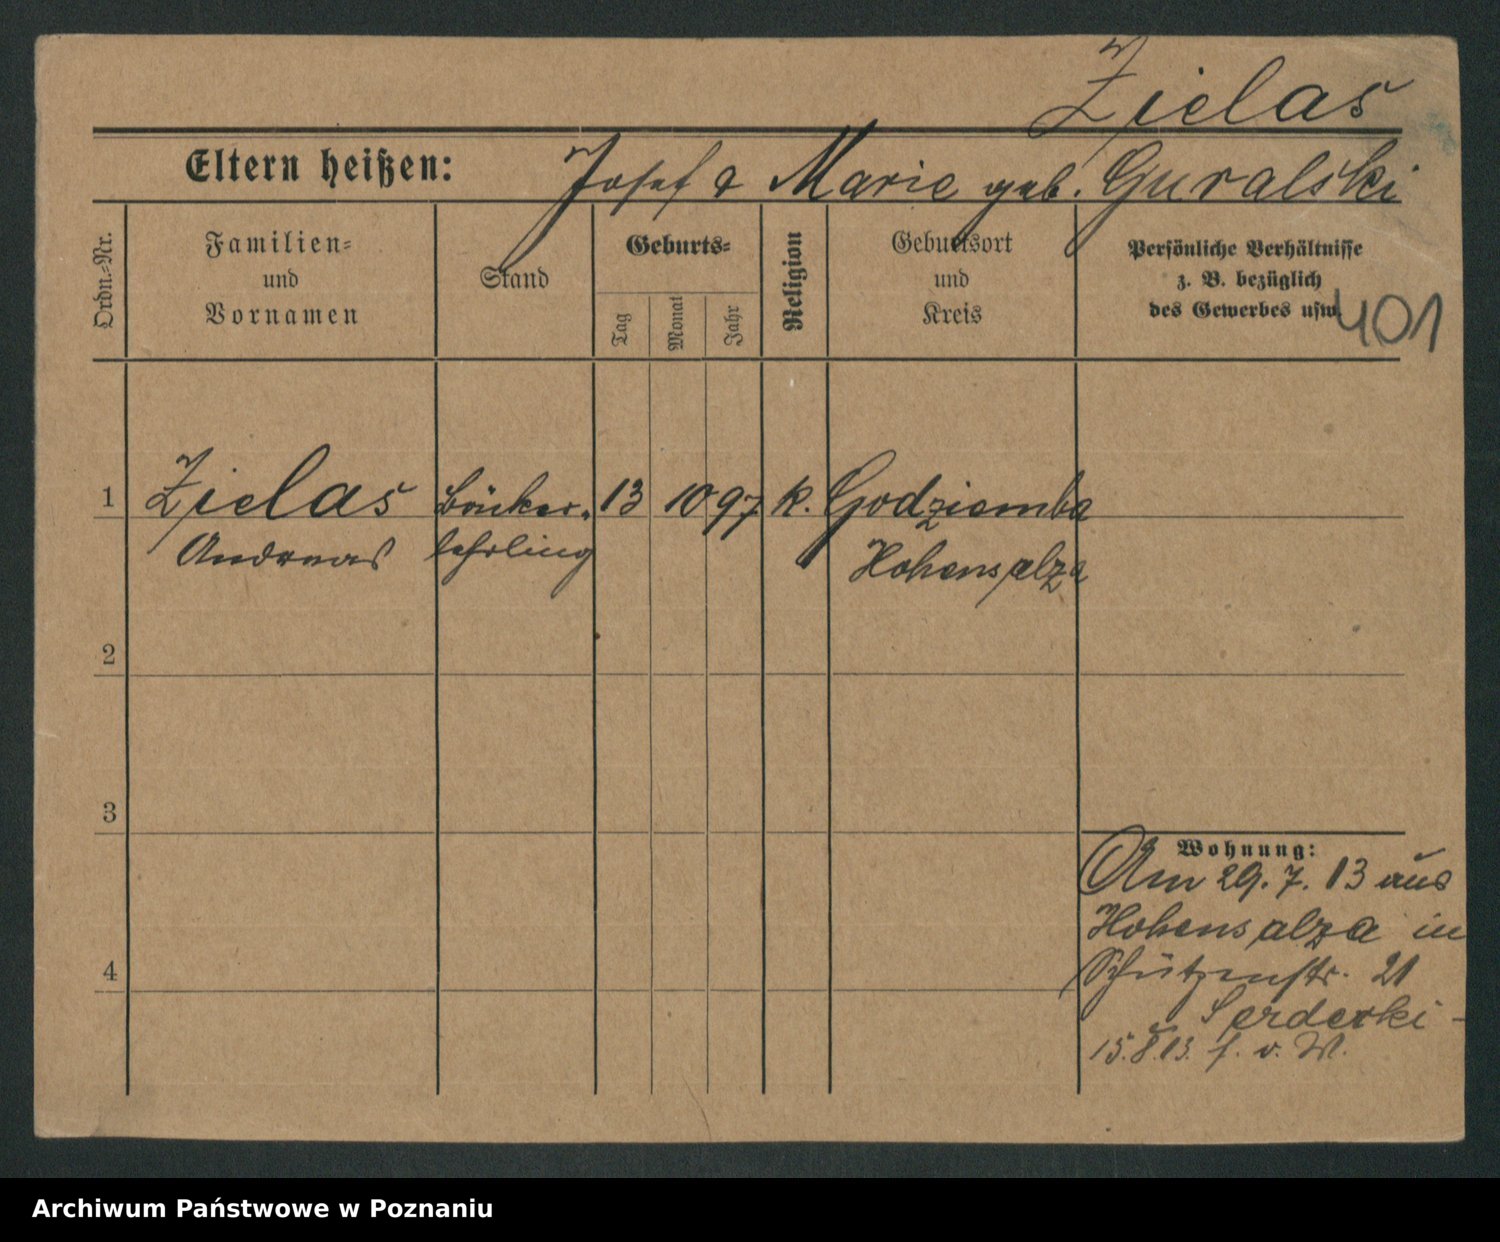 Zielas
Eltern heißen: Josef & Marie geb. Guralski
Ordn.=Nr.
Familien=
und
Vornamen
Stand
Geburts=
Tag
Monat
Jahr
Religion
Geburtsort
und
Kreis
Persönliche Verhältnisse
z. B. bezüglich
des Gewerbes usw.
401
1 Zielas Bäcker- 13 10 97 k. Godziemba
Andreas lehrling Hohensalza
2
3
4
Wohnung:
Am 29. 7. 13 aus
Hohensalza in
Schützenstr. 21
15. 8. 13. f. v. W.
Archiwum Państwowe w Poznaniu